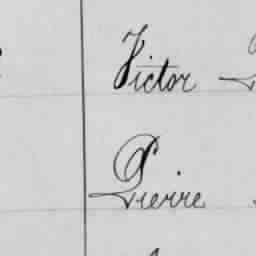 Victor
Pierre